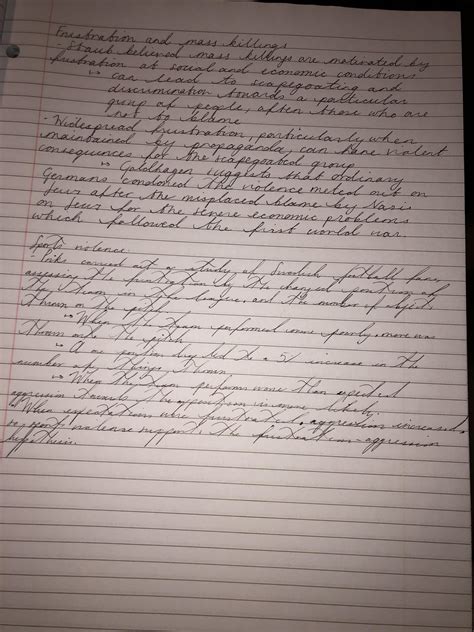 Frustration and mass killings
- Staub believed mass killings are motivated by
frustration at social and economic conditions
↳ can lead to scapegoating and
discrimination towards a particular
group of people, often those who are
not to blame
- Widespread frustration, particularly when
maintained by propaganda, can have violent
consequences for the scapegoated group
↳ Goldhagen suggests that ordinary
Germans condoned the violence meted out on
Jews after the misplaced blame by Nazis
on Jews for the severe economic problems
which followed the first world war.
Sports violence
- Priks carried out a study of Swedish football fans,
assessing the frustration by the changed position of
the team in the league, and the number of objects
thrown on the pitch
↳ When the team performed more poorly, more was
thrown onto the pitch
↳ A one position drop led to a 5% increase in the
number of things thrown
↳ When the team performs worse than expected
aggression towards the opposition is more likely.
↳ When expectations were frustrated, aggression increased
so sport violence supports the frustration-aggression
hypothesis.